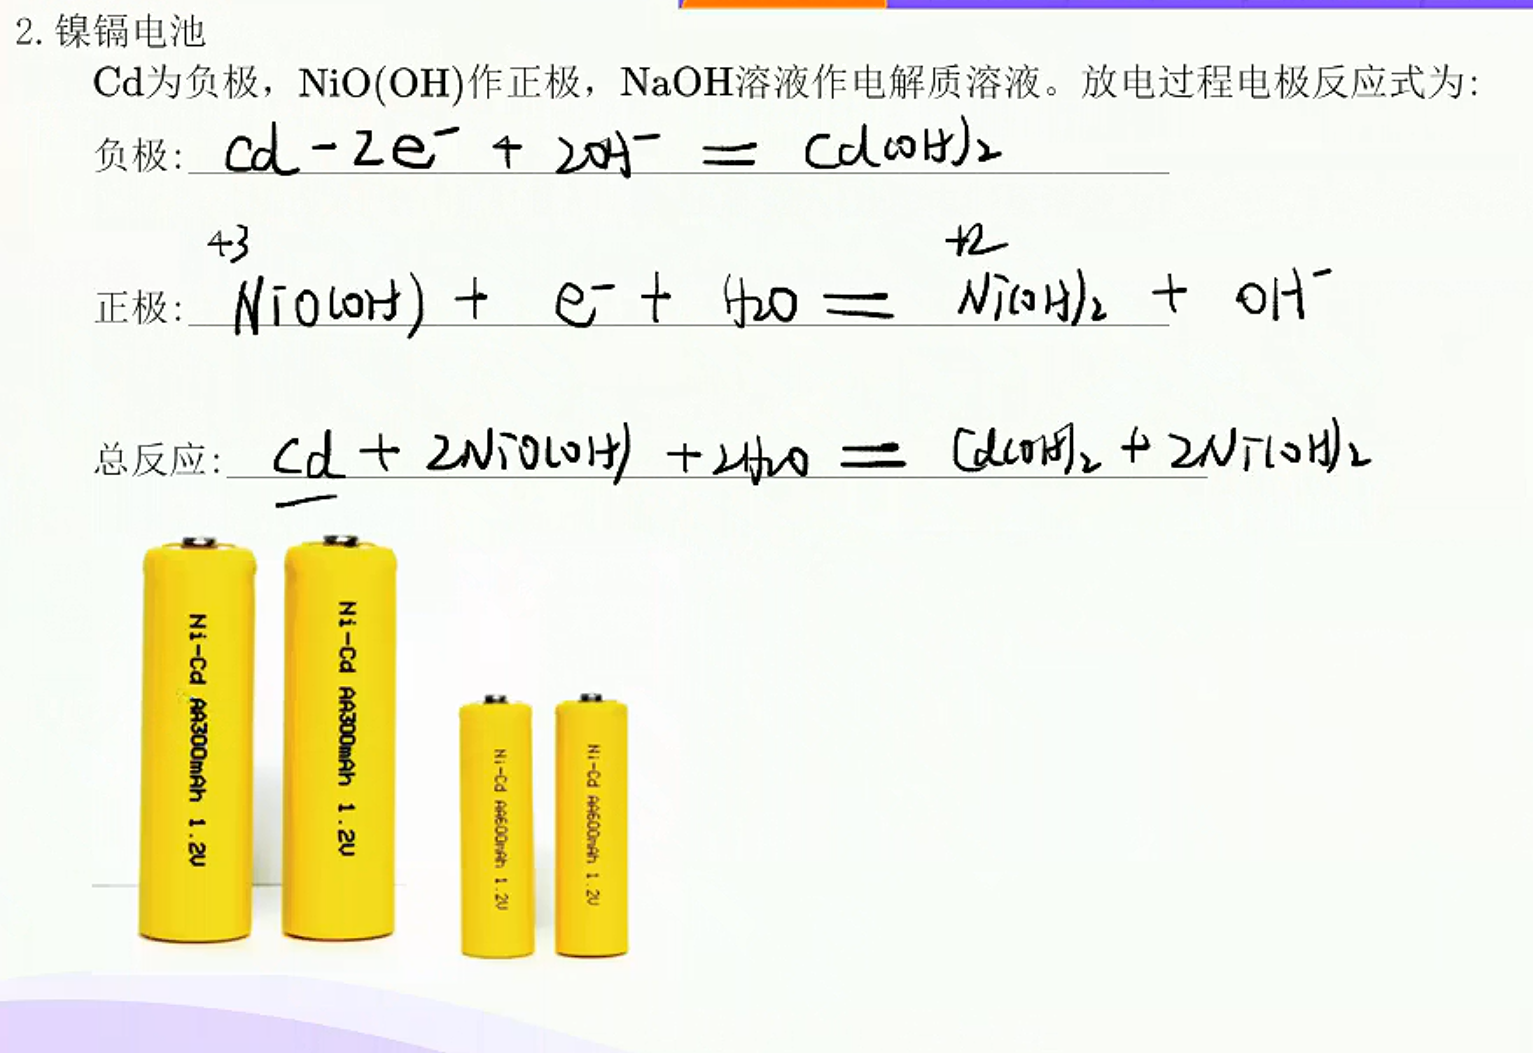 2. 镍镉电池
Cd为负极，NiO(OH)作正极，NaOH溶液作电解质溶液。放电过程电极反应式为:
负极: Cd - 2e⁻ + 2OH⁻ = Cd(OH)₂
+3 +2
正极: NiO(OH) + e⁻ + H₂O = Ni(OH)₂ + OH⁻
总反应: Cd + 2NiO(OH) + 2H₂O = Cd(OH)₂ + 2Ni(OH)₂
Ni-Cd AA300mAh 1.2V
Ni-Cd AA300mAh 1.2V
Ni-Cd AA600mAh 1.2V
Ni-Cd AA600mAh 1.2V